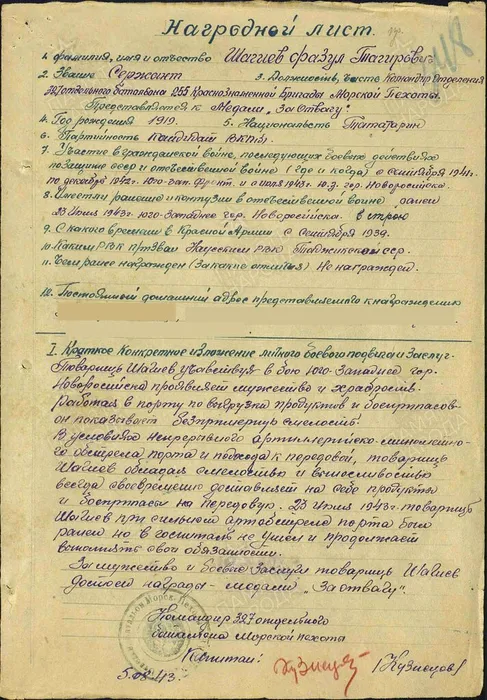 Наградной лист.
1. Фамилия, имя и отчество Шагиев Фазул Тагирович
2. Звание Сержант 3. Должность, часть Командир отделения
327 отдельного батальона 255 Краснознаменной Бригады Морской Пехоты.
Представляется к Медали „За Отвагу".
4. Год рождения 1919. 5. Национальность Татарин
6. Партийность Кандидат ВКПб
7. Участие в гражданской войне, последующих боевых действиях
по защите СССР и отечественной войне (где и когда) с сентября 1941г.
по декабрь 1942г. Юго-Зап. Фронт. и с июля 1943г. Ю.З. гор. Новороссийска.
8. Имеет ли ранения и контузии в отечественной войне ранен
23 Июля 1943г. юго-западнее гор. Новороссийска. В строю
9. С какого времени в Красной Армии с Сентября 1939.
10. Каким РВК призван РВК Таджикской сср.
11. Чем ранее награжден (За какие отличия) Не награжден.
12. Постоянный домашний адрес представляемого к награждению
I. Краткое Конкретное изложение личного боевого подвига и Заслуг
Товарищ Шагиев участвуя в бою юго-Западнее гор.
Новороссийска проявляет мужество и храбрость.
Работая в порту по выгрузки продуктов и боепрпасов-
он показывает безпримерную смелость.
В условиях непрерывного артиллерийско-минометно-
го обстрела порта и подхода к передовой, товарищ
Шагиев обладая смелостью и выносливостью
всегда своевременно доставляет на себе продукты
и боепрпасы на Передовую. 23 Июля 1943г. товарищ
Шагиев при сильном артобстреле порта был
ранен но в госпиталь не ушел и продолжает
выполнять свои обязанности.
За мужество и боевые Заслуги товарищ Шагиев
достоен награды - медали „За отвагу".
Командир 327 отдельного
батальона Морской пехоты
Капитан: Кузнецов /Кузнецов/
5.08.43г.